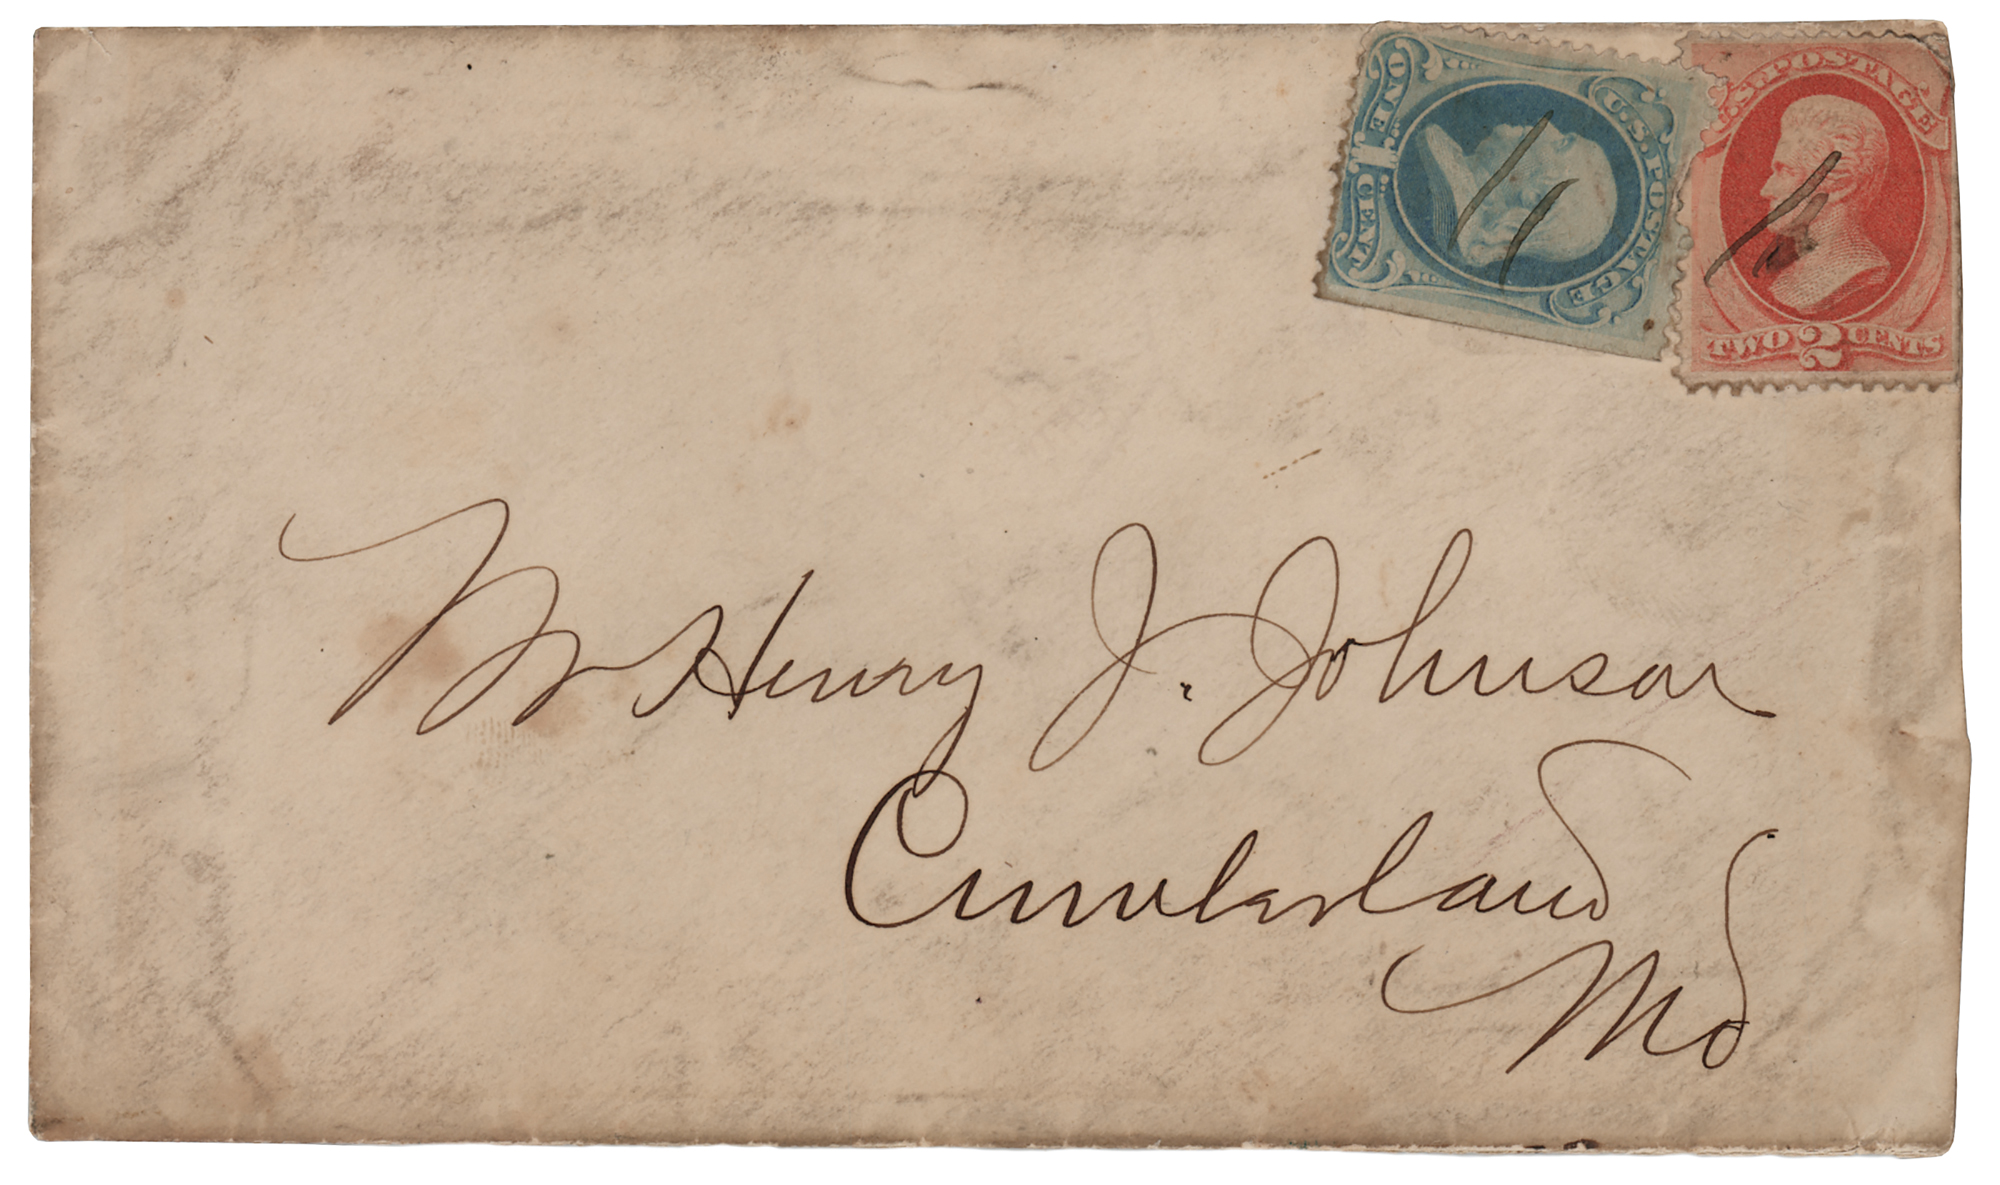 ONE 1 CENT
U.S. POSTAGE
U.S. POSTAGE
TWO 2 CENTS
Mr Henry J. Johnson
Cumberland
Md